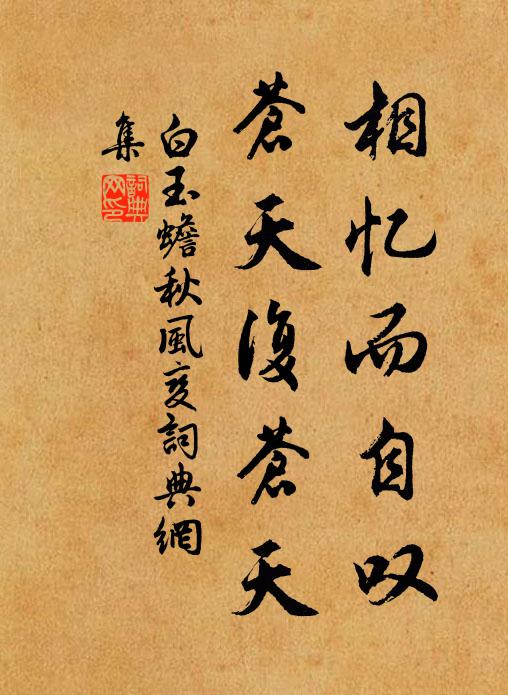 相忆而自叹
蒼天復蒼天
白玉蟾秋風变詞典網
集
詞典
网印